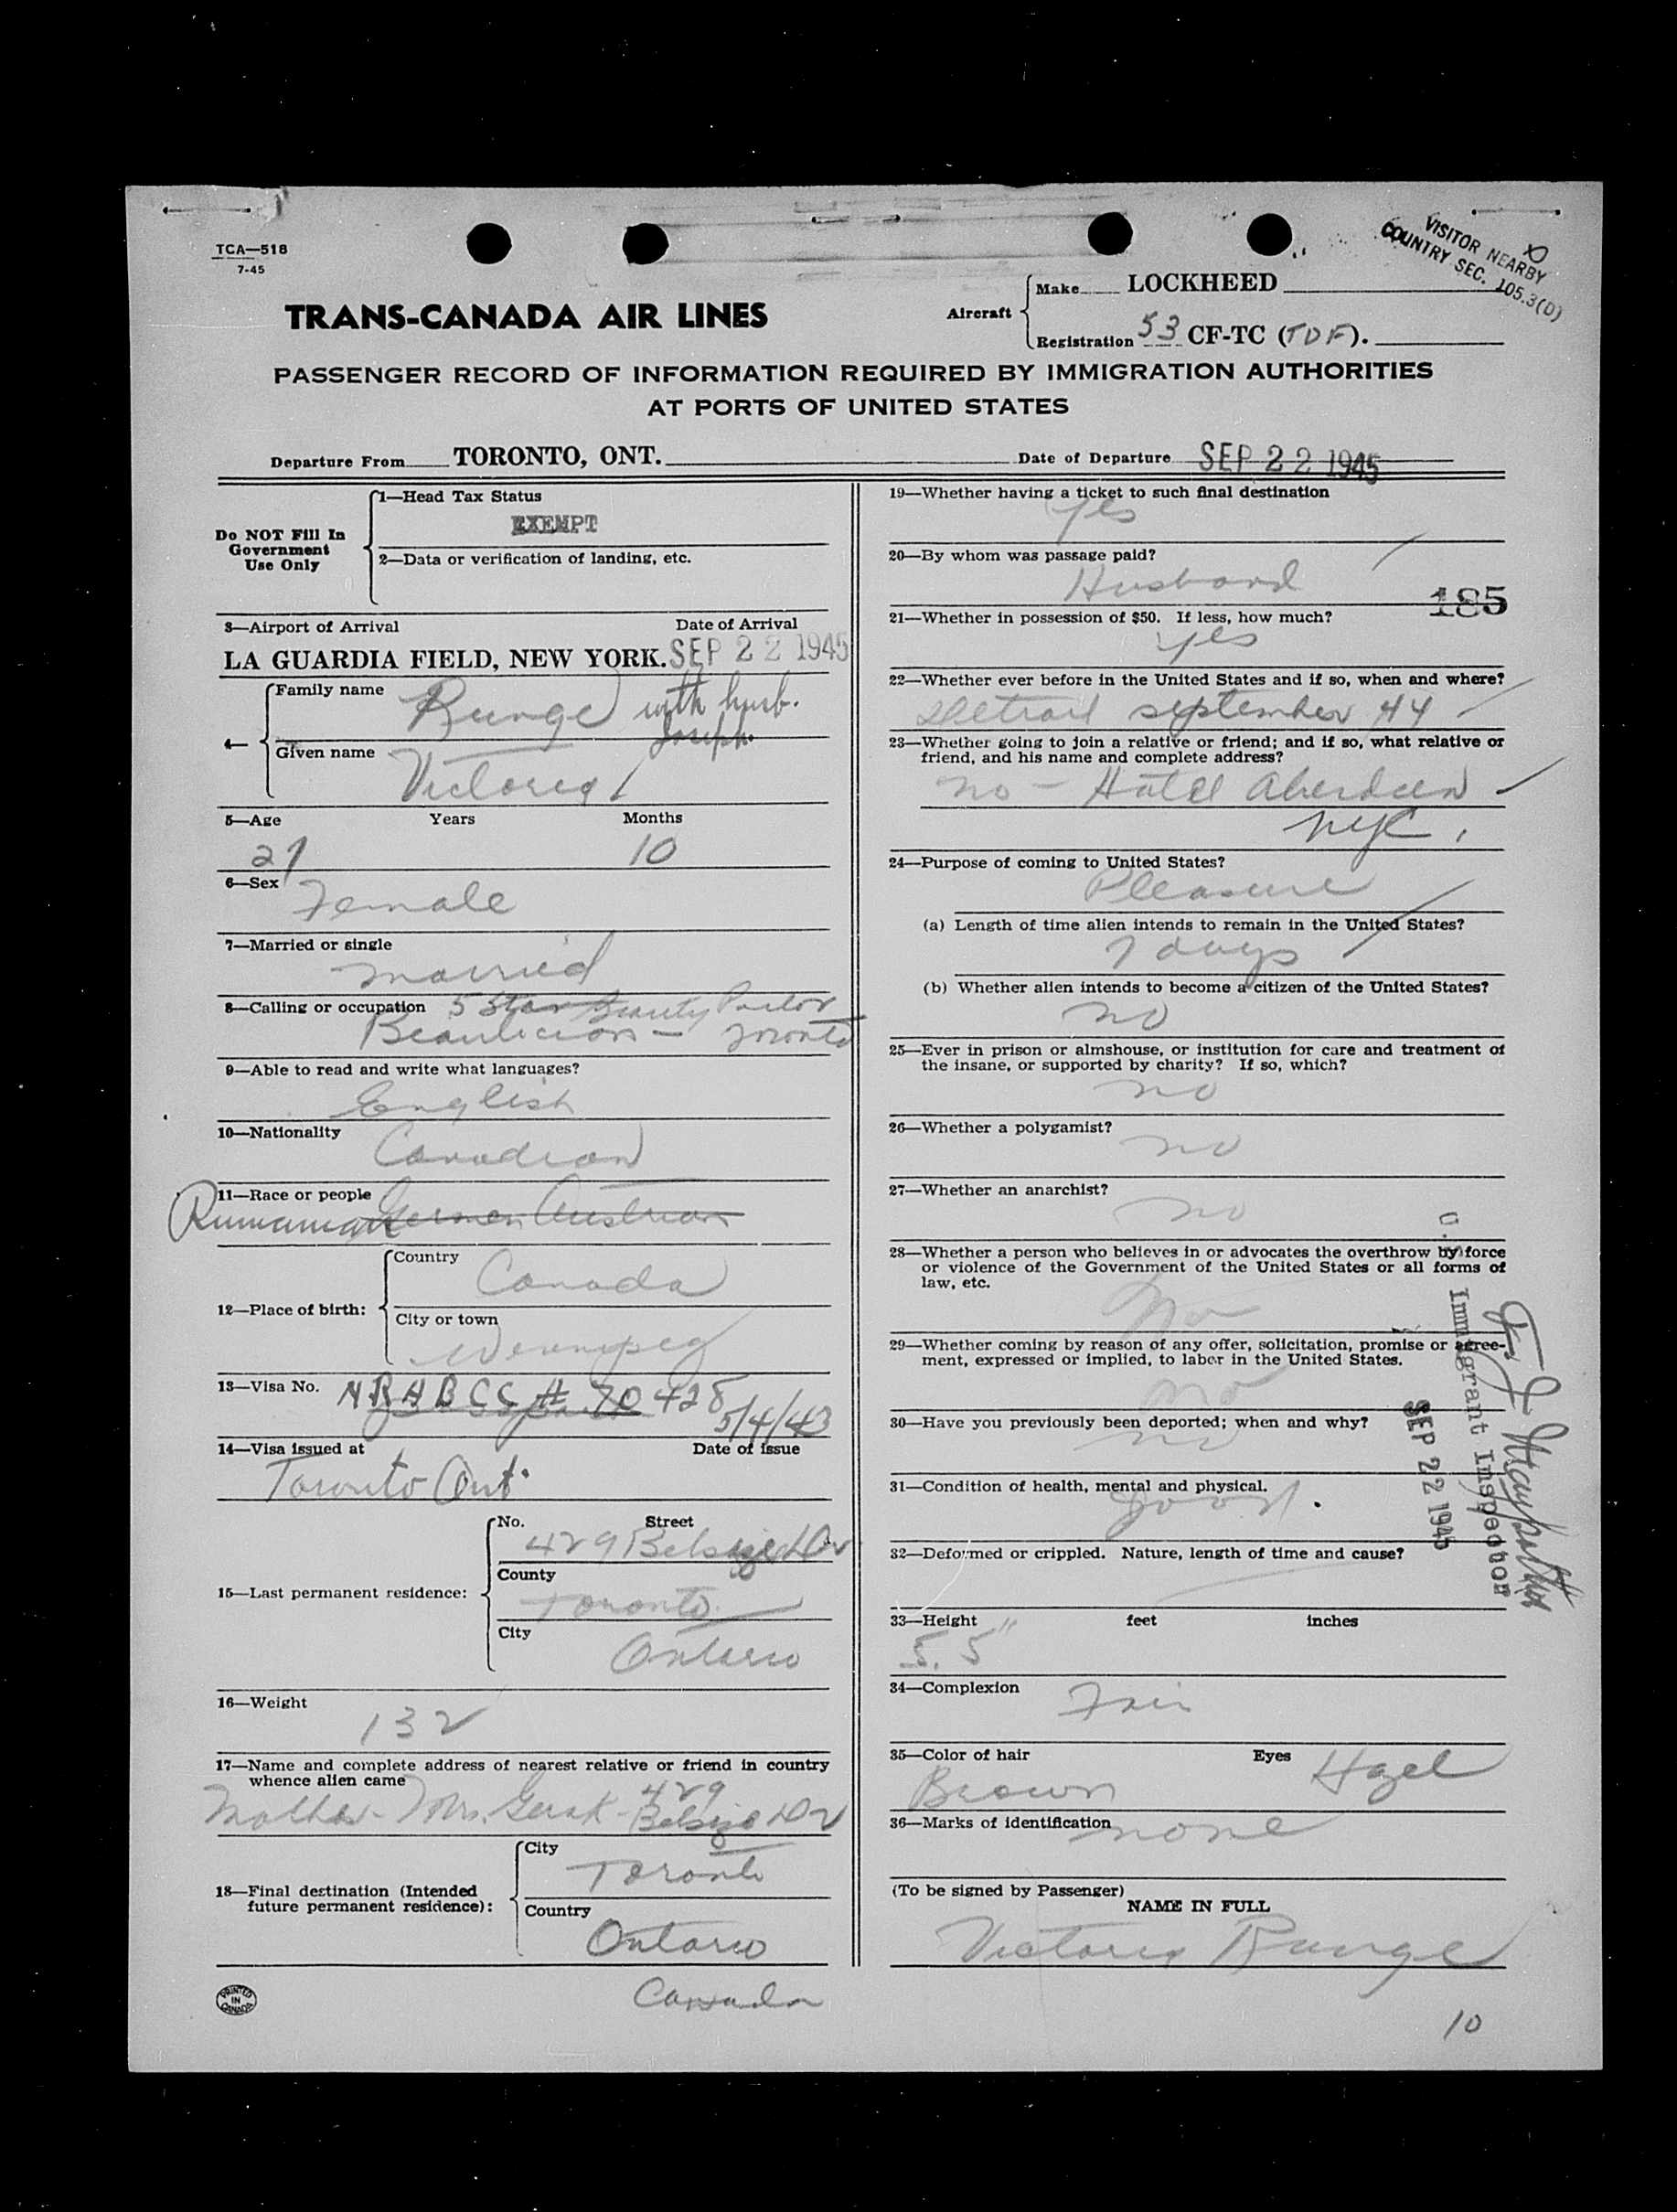 TCA—518
7-45
VISITOR NEARBY
COUNTRY SEC. 105.3(D)
TRANS-CANADA AIR LINES
Aircraft
Make LOCKHEED
Registration 53 CF-TC (TDF).
PASSENGER RECORD OF INFORMATION REQUIRED BY IMMIGRATION AUTHORITIES
AT PORTS OF UNITED STATES
Departure From TORONTO, ONT. Date of Departure SEP 22 1945
Do NOT Fill In
Government
Use Only
1—Head Tax Status
EXEMPT
2—Data or verification of landing, etc.
3—Airport of Arrival Date of Arrival
LA GUARDIA FIELD, NEW YORK. SEP 22 1945
4—
Family name Runge with husb.
Joseph.
Given name
Victoria
5—Age Years Months
27 10
6—Sex
Female
7—Married or single
married
8—Calling or occupation 5 Star Beauty Parlor
Beautician — Toronto
9—Able to read and write what languages?
English
10—Nationality
Canadian
11—Race or people
Rumanian German Austrian
12—Place of birth:
Country
Canada
City or town
Winnipeg
13—Visa No. NRABCC # 70428
5/4/43
14—Visa issued at Date of issue
Toronto Ont.
15—Last permanent residence:
No. Street
429 Belsize Dr
County
Toronto
City
Ontario
16—Weight
132
17—Name and complete address of nearest relative or friend in country
whence alien came
Mother - Mrs. 429
Belsize Dr
18—Final destination (Intended
future permanent residence):
City
Toronto
Country
Ontario
Canada
PRINTED
IN
CANADA
19—Whether having a ticket to such final destination
yes
20—By whom was passage paid?
Husband
185
21—Whether in possession of $50. If less, how much?
yes
22—Whether ever before in the United States and if so, when and where?
Detroit september 44
23—Whether going to join a relative or friend; and if so, what relative or
friend, and his name and complete address?
no - Hotel Aberdeen
NYC.
24—Purpose of coming to United States?
Pleasure
(a) Length of time alien intends to remain in the United States?
7 days
(b) Whether alien intends to become a citizen of the United States?
no
25—Ever in prison or almshouse, or institution for care and treatment of
the insane, or supported by charity? If so, which?
no
26—Whether a polygamist?
no
27—Whether an anarchist?
no
28—Whether a person who believes in or advocates the overthrow by force
or violence of the Government of the United States or all forms of
law, etc.
no
29—Whether coming by reason of any offer, solicitation, promise or agree-
ment, expressed or implied, to labor in the United States.
no
30—Have you previously been deported; when and why?
no
31—Condition of health, mental and physical.
good.
32—Deformed or crippled. Nature, length of time and cause?
U.S. Immigrant Inspector
SEP 22 1945
33—Height feet inches
5. 5"
34—Complexion Fair
35—Color of hair Eyes Hazel
Brown
36—Marks of identification none
(To be signed by Passenger)
NAME IN FULL
Victoria Runge
10